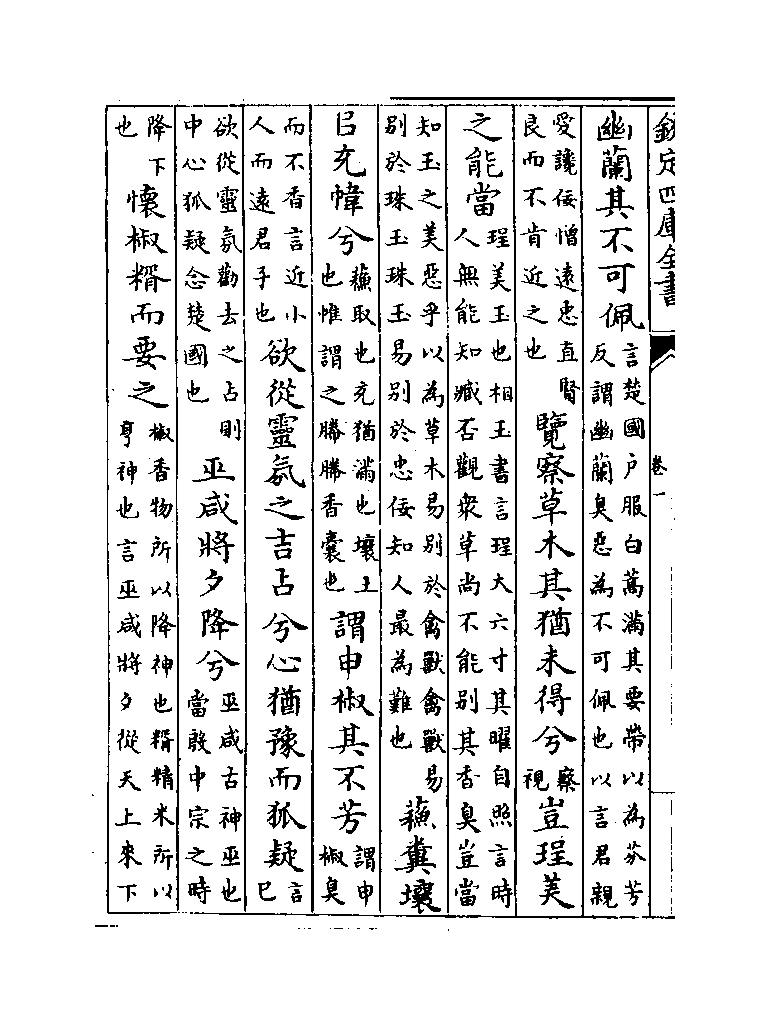 欽定四庫全書
卷一
幽蘭其不可佩言楚國户服白蒿滿其要帶以為芬芳反謂幽蘭臭惡為不可佩也以言君親
愛讒佞憎遠忠直賢良而不肯近之也覽察草木其猶未得兮察視豈珵美
之能當珵美玉也相玉書言珵大六寸其曜自照言時人無能知臧否觀衆草尚不能别其香臭豈當
知玉之美惡乎以為草木易别於禽獸禽獸易别於珠玉珠玉易别於忠佞知人最為難也蘓糞壤
㠯充幃兮蘓取也充猶滿也壤土也幃謂之幐幐香囊也謂申椒其不芳謂申椒臭
而不香言近小人而遠君子也欲從靈氛之吉占兮心猶豫而狐疑言已
欲從靈氛勸去之占則中心狐疑念楚國也巫咸將夕降兮巫咸古神巫也當殷中宗之時
降下也懷椒糈而要之椒香物所以降神也糈精米所以享神也言巫咸將夕從天上來下